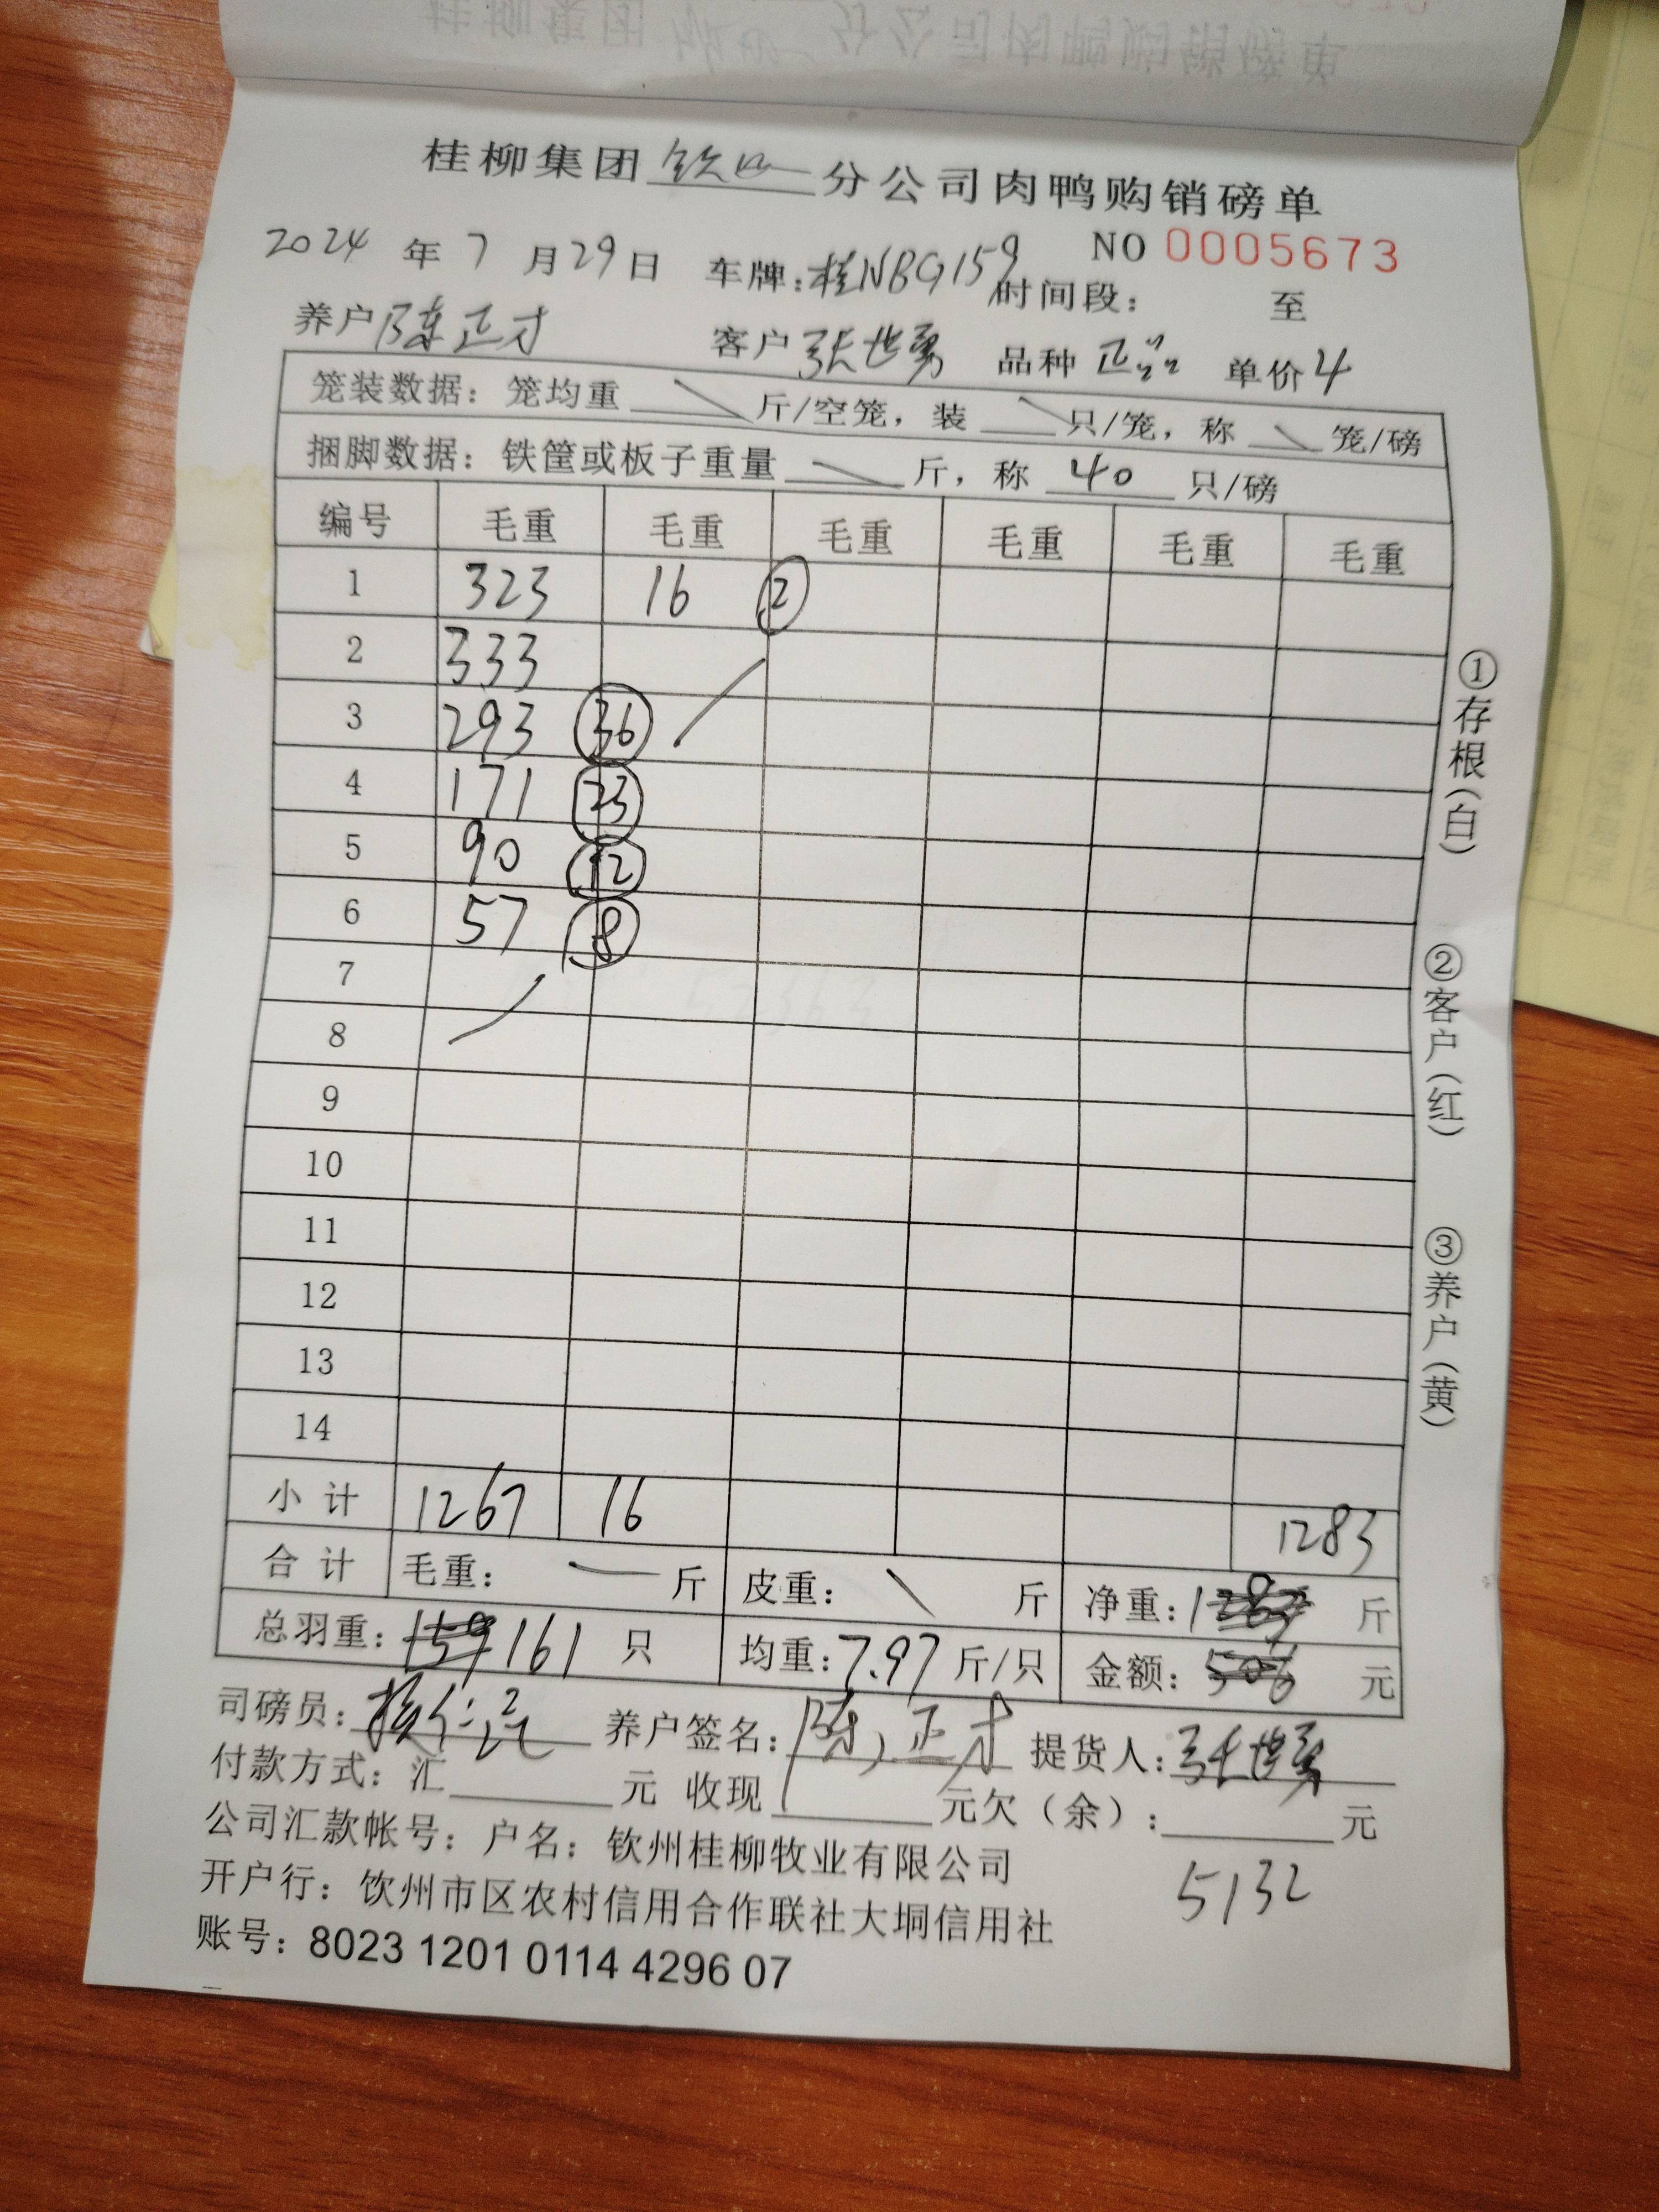 桂柳集团 钦山 分公司肉鸭购销磅单
2024 年 7 月 29 日 车牌:桂NBG159 NO 0005673
时间段: 至
养户 陈正才 客户 张世勇 品种 正品 单价 4
笼装数据: 笼均重 斤/空笼, 装 只/笼, 称 笼/磅
捆脚数据: 铁筐或板子重量 斤, 称 40 只/磅
编号 毛重 毛重 毛重 毛重 毛重 毛重
1 323 16 2
2 333
3 293 36
4 171 23
5 90 12
6 57 8
7
8
9
10
11
12
13
14
小计 1267 16 1283
合计 毛重: 斤 皮重: 斤 净重: 斤
总羽重: 161 只 均重: 7.97 斤/只 金额: 元
司磅员: 养户签名: 陈正才 提货人: 张世勇
付款方式: 汇 元 收现 元欠(余): 元
公司汇款帐号: 户名: 钦州桂柳牧业有限公司
5132
开户行: 钦州市区农村信用合作联社大垌信用社
账号: 8023 1201 0114 4296 07
①存根(白)
②客户(红)
③养户(黄)